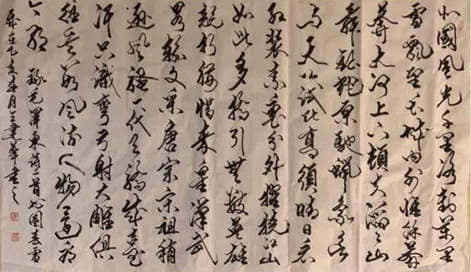 北國風光千里冰封萬里
雪飄望長城内外惟餘莽
莽大河上下頓失滔滔山
舞銀蛇原馳蠟象欲
與天公試比高須晴日看
紅裝素裹分外妖嬈江山
如此多嬌引無數英雄
競折腰惜秦皇漢武
略輸文采唐宗宋祖稍
遜風騷一代天驕成吉思
汗只識彎弓射大雕俱
往矣數風流人物還看
今朝 毛澤東詩一首沁園春雪
歲在 年 月 書